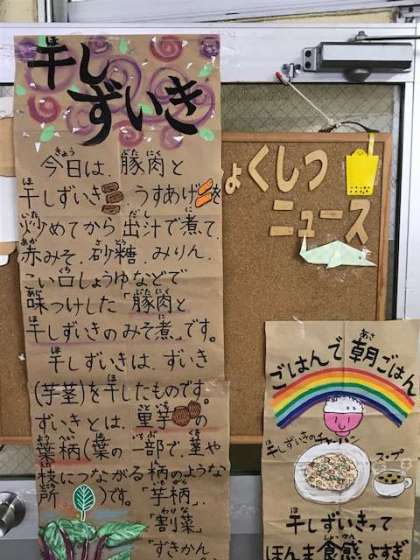 干しずいき
今日は、豚肉と
干しずいき、うすあげを
炒めてから出汁で煮て、
赤みそ、砂糖、みりん、
こい口しょうゆなどで
味つけした「豚肉と
干しずいきのみそ煮」です。
干しずいきは、ずいき
(芋茎)を干したものです。
ずいきとは、里芋の
葉柄(葉の一部で、茎や
枝につながる柄のような
所)です。「芋柄」、
「割菜」
「ずきかん
ょくしつ
ニュース
ごはんで朝ごはん
干しずいきのチャーハン
スープ
干しずいきって
ほんま食感よすぎ